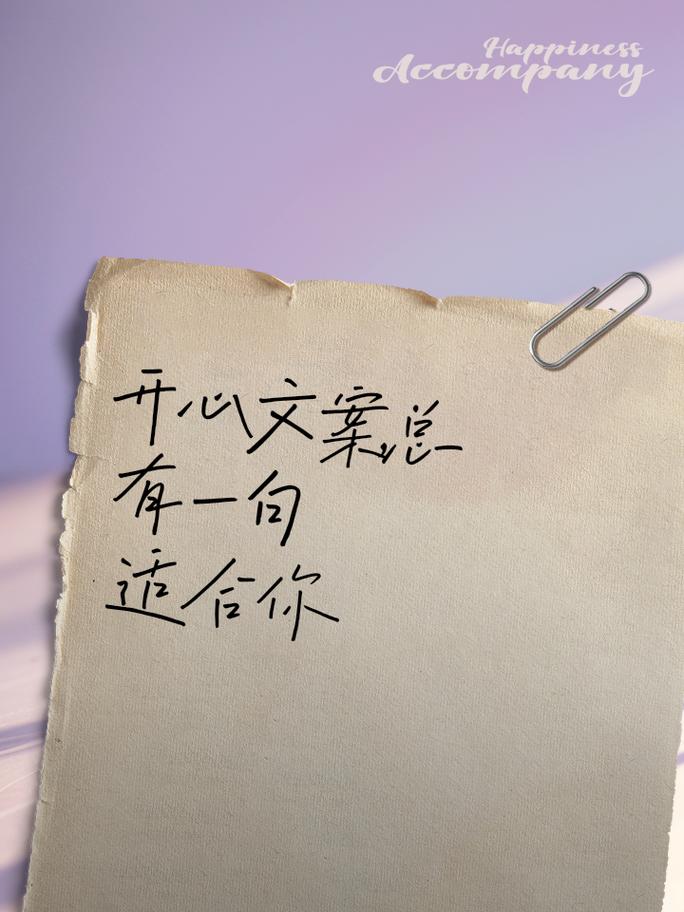 Happiness
Accompany
开心文案总
有一句
适合你